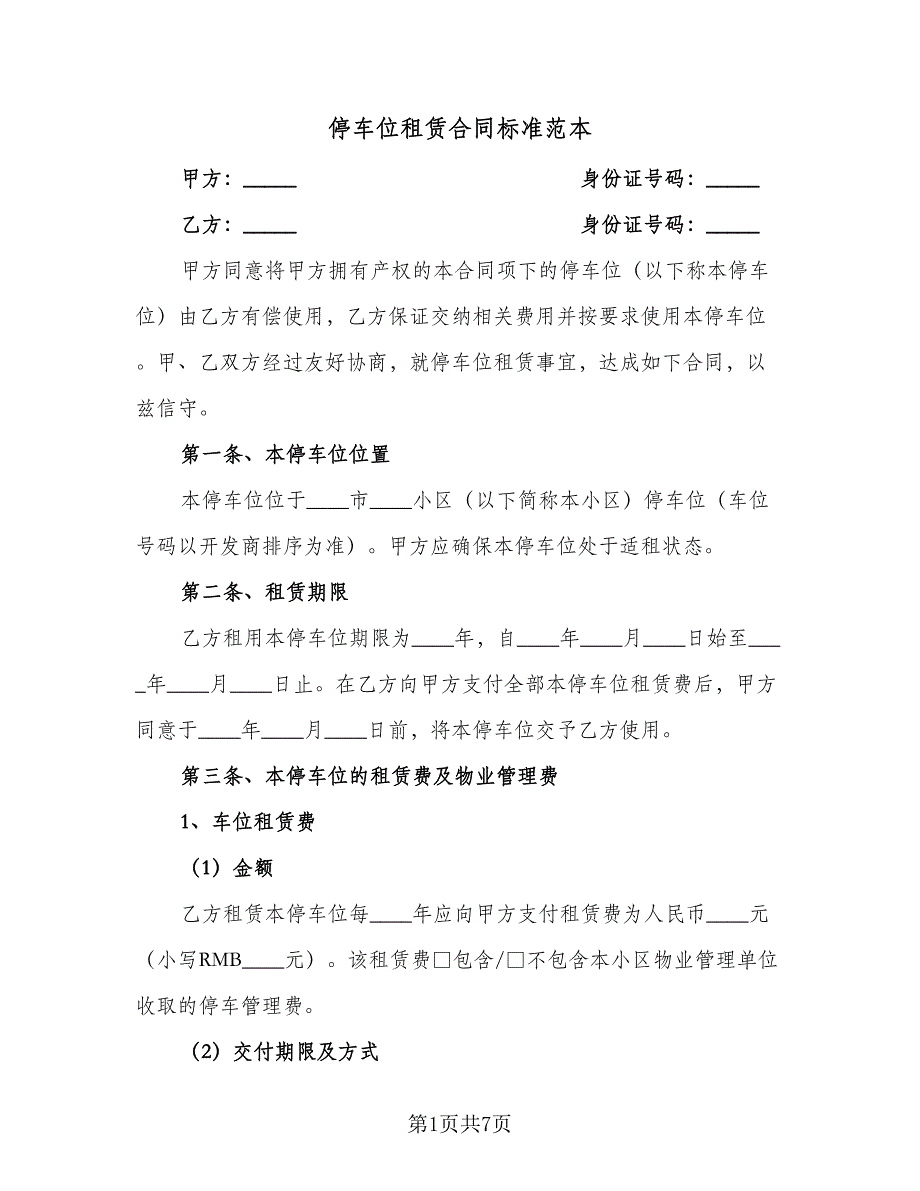 停车位租赁合同标准范本
甲方：_____ 身份证号码：_____
乙方：_____ 身份证号码：_____
甲方同意将甲方拥有产权的本合同项下的停车位（以下称本停车
位）由乙方有偿使用，乙方保证交纳相关费用并按要求使用本停车位
。甲、乙双方经过友好协商，就停车位租赁事宜，达成如下合同，以
兹信守。
第一条、本停车位位置
本停车位位于____市____小区（以下简称本小区）停车位（车位
号码以开发商排序为准）。甲方应确保本停车位处于适租状态。
第二条、租赁期限
乙方租用本停车位期限为____年，自____年____月____日始至___
_年____月____日止。在乙方向甲方支付全部本停车位租赁费后，甲方
同意于____年____月____日前，将本停车位交予乙方使用。
第三条、本停车位的租赁费及物业管理费
1、车位租赁费
（1）金额
乙方租赁本停车位每____年应向甲方支付租赁费为人民币____元
（小写RMB____元）。该租赁费□包含/□不包含本小区物业管理单位
收取的停车管理费。
（2）交付期限及方式
第1页共7页